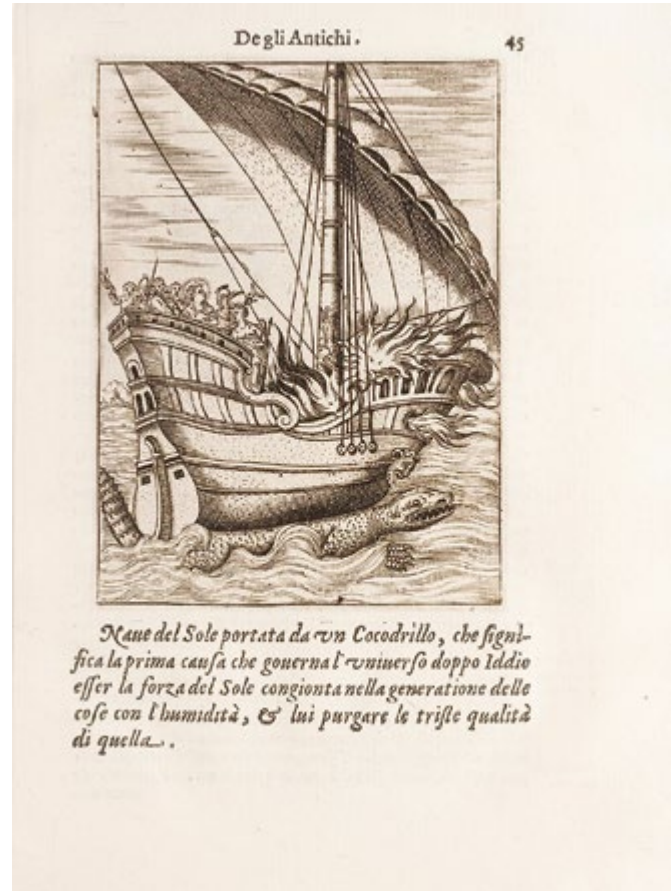 Degli Antichi. 45
Naue del Sole portata da vn Cocodrillo, che signi-
fica la prima causa che gouerna l'vniuerso doppo Iddio
esser la forza del Sole congionta nella generatione delle
cose con l'humidità, & lui purgare le triste qualità
di quella.